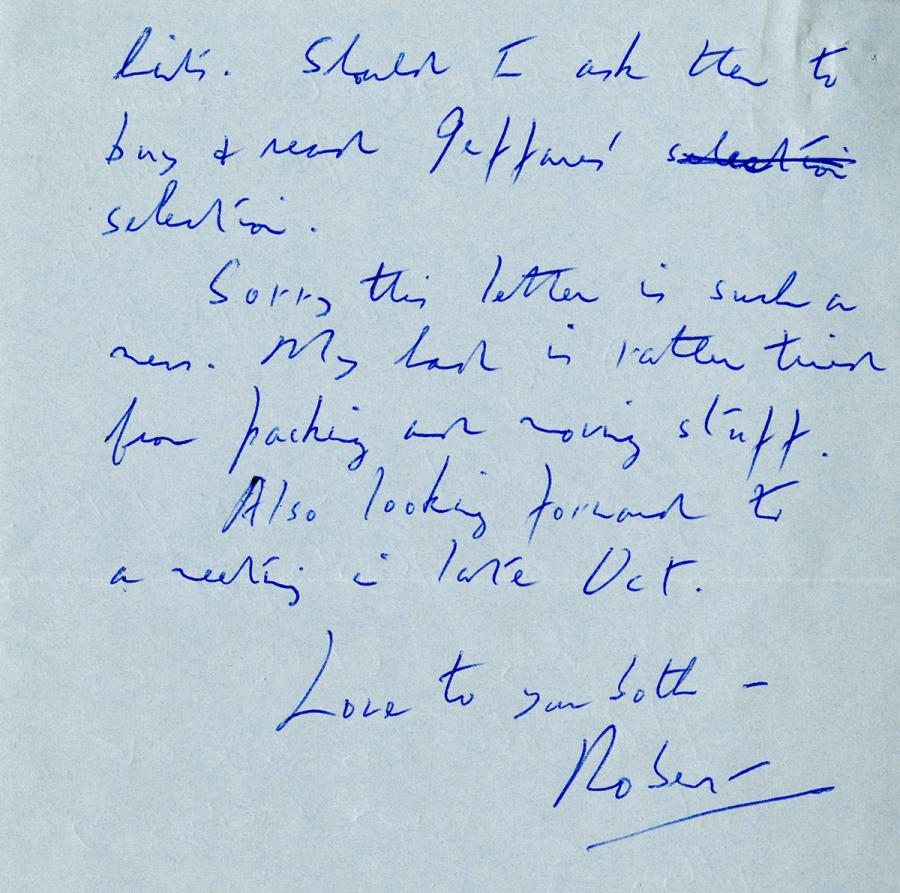 lists. Should I ask them to
buy & read Jeffares' selection
selection.
Sorry this letter is such a
mess. My hand is rather tired
from packing and moving stuff.
Also looking forward to
a meeting in late Oct.
Love to you both –
Robert